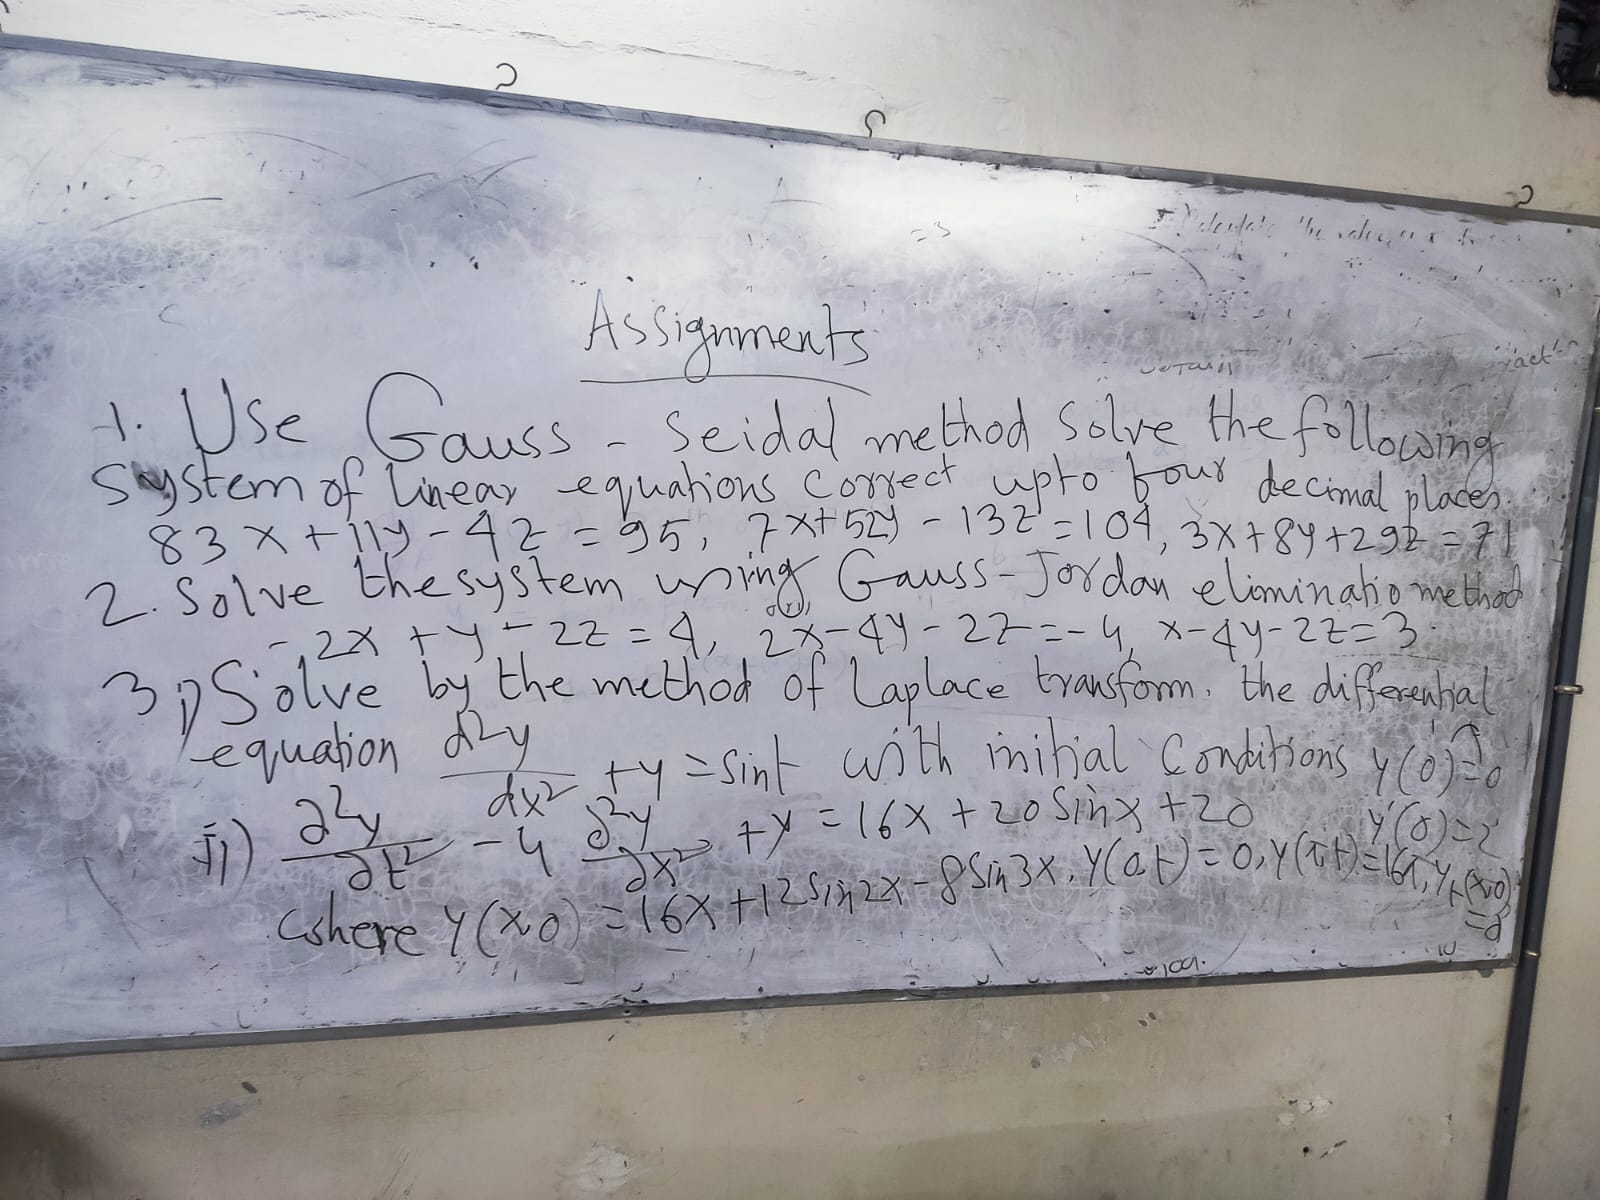 Assignments
1. Use Gauss - Seidal method Solve the following
System of linear equations Correct upto four decimal places.
83x + 11y - 4z = 95, 7x + 52y - 13z = 104, 3x + 8y + 29z = 71
2. Solve the system using Gauss-Jordan eliminatio method
-2x + y - 2z = 4, 2x - 4y - 2z = -4, x - 4y - 2z = 3
3 i) Solve by the method of Laplace transform. the differential
equation d²y/dx² + y = Sint with initial Conditions y(0) = 0
y'(0) = 2
ii) ∂²y/∂t² - 4 ∂²y/∂x² + y = 16x + 20 Sinx + 20
where y(x,0) = 16x + 12 Sin2x - 8 Sin3x, y(0,t) = 0, y(π,t) = 16π, yt(x,0)